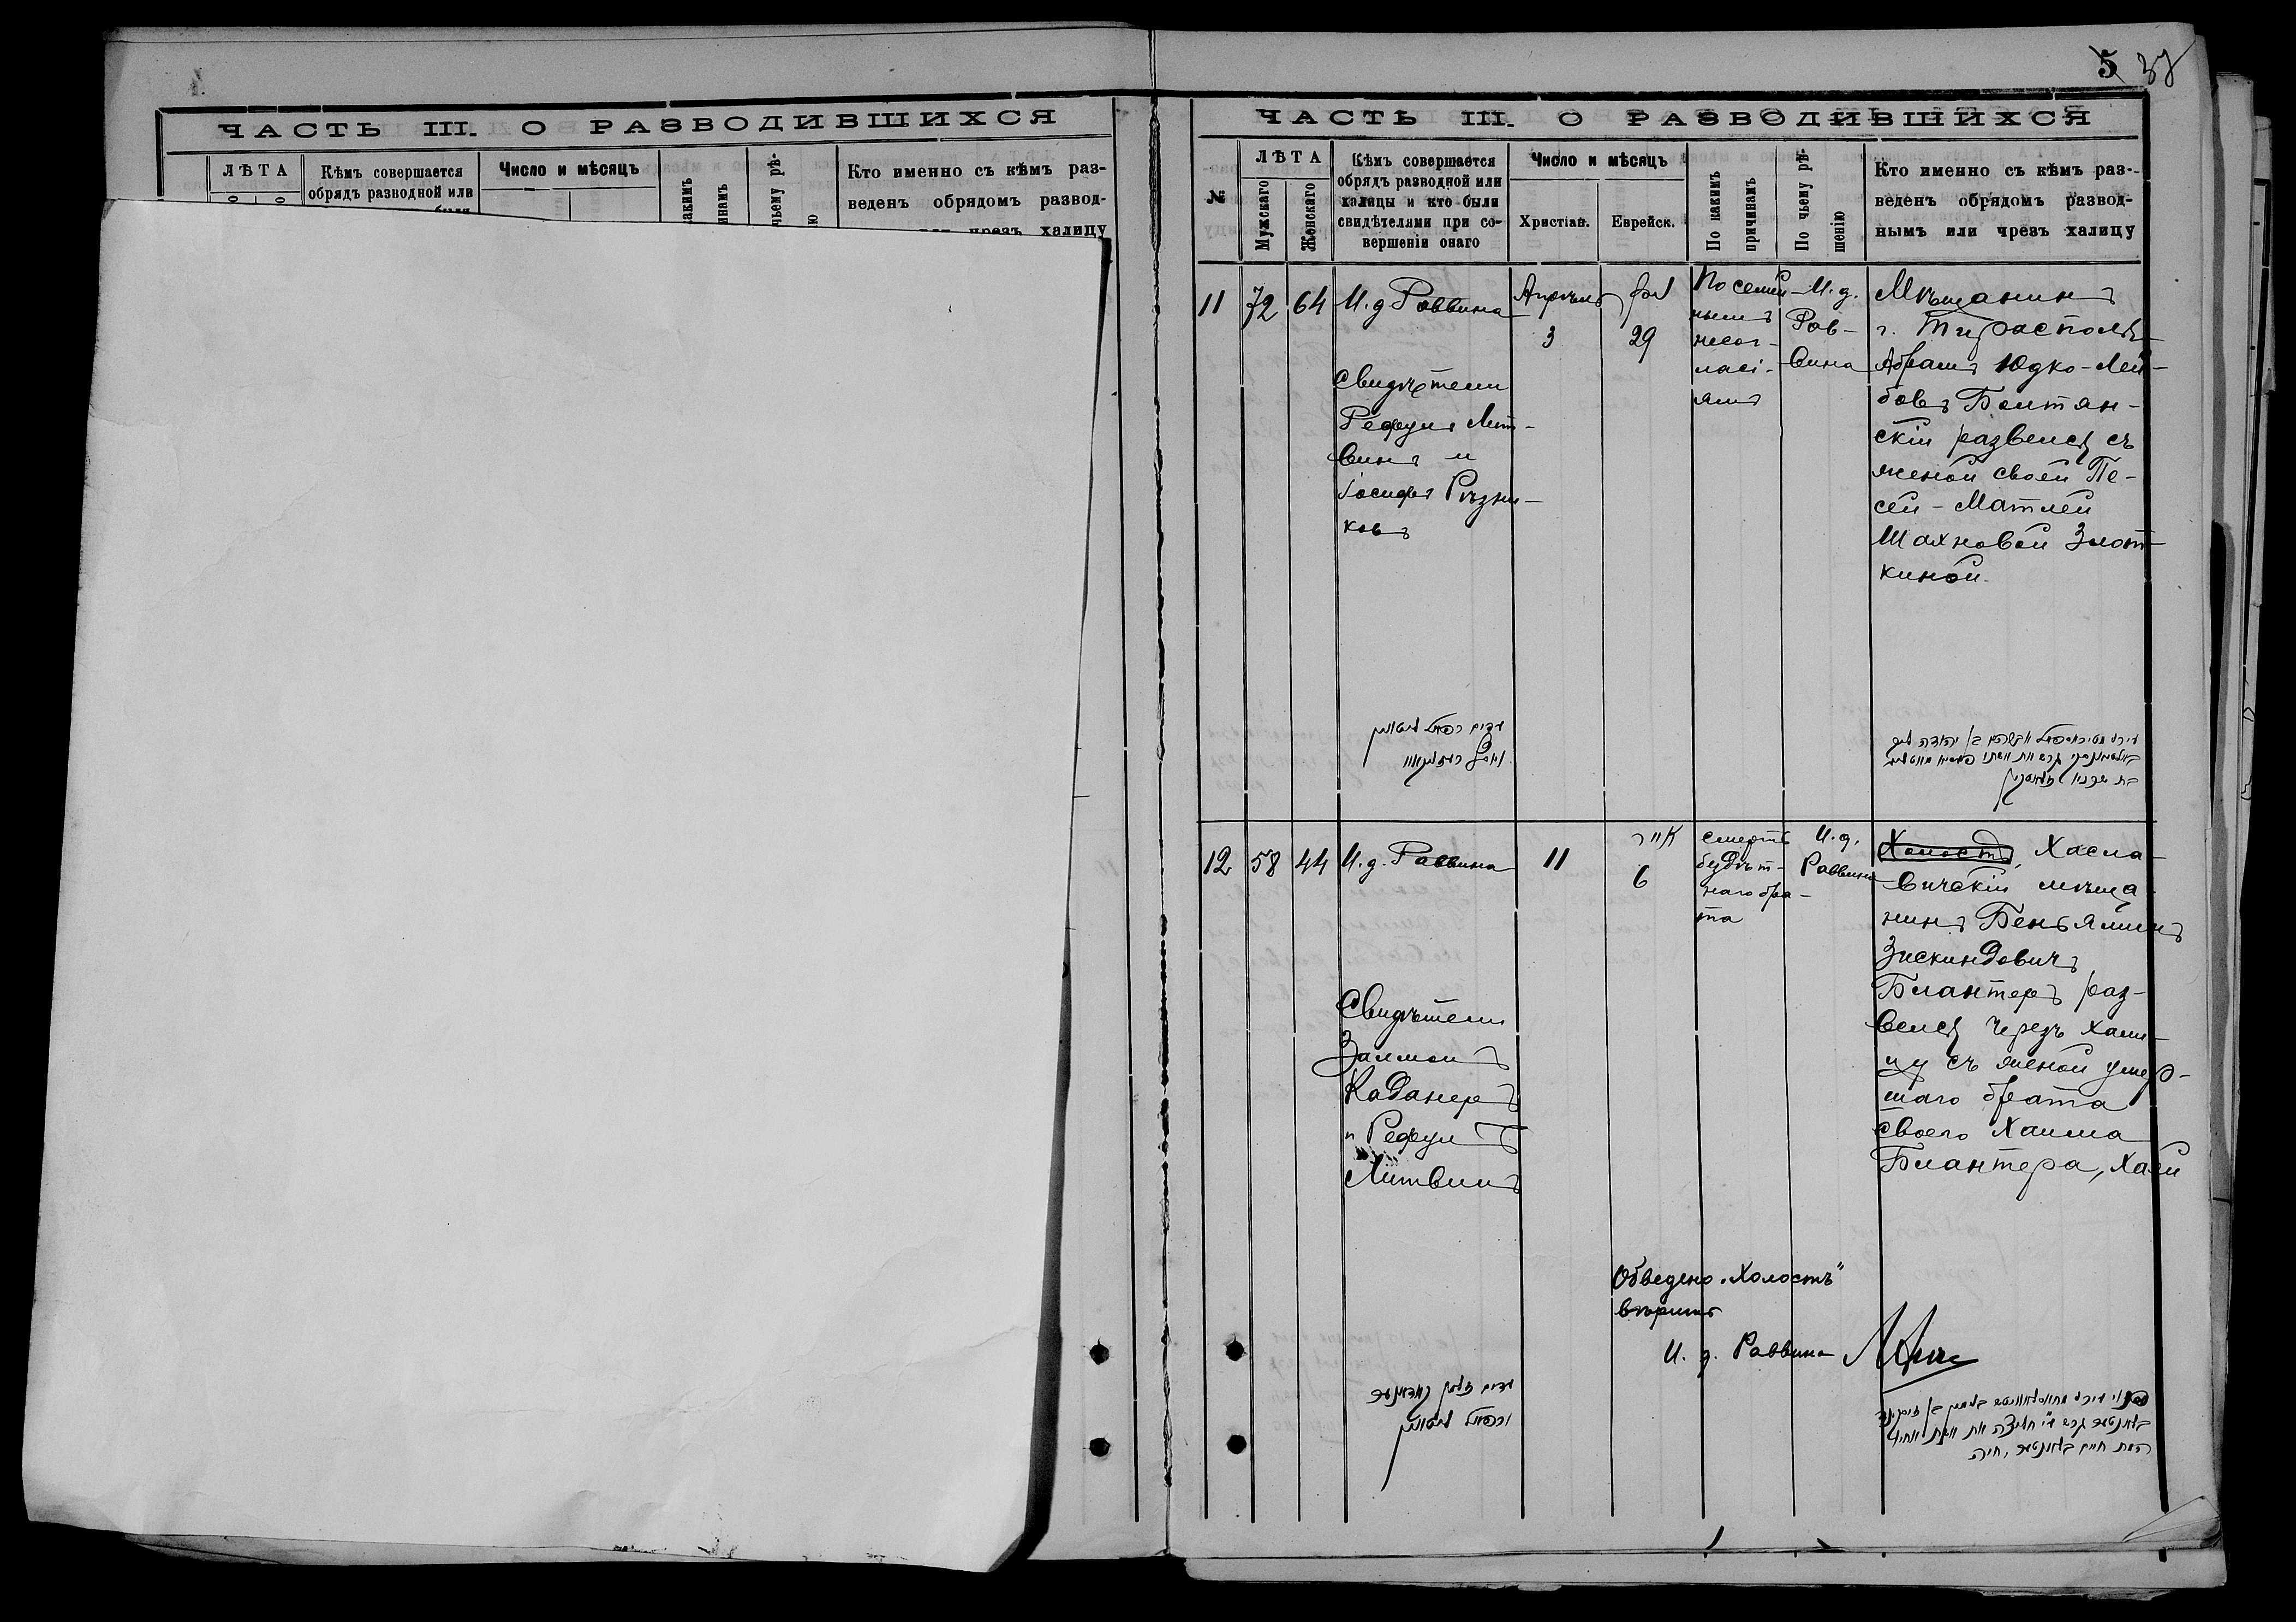 ЧАСТЬ III. О РАЗВОДИВШИХСЯ
ЛѢТА
Кѣмъ совершается
обрядъ разводной или
Число и мѣсяцъ
Кто именно съ кѣмъ раз-
веденъ обрядомъ развод-
чрезъ халицу
5 37
ЧАСТЬ III. О РАЗВОДИВШИХСЯ
№
ЛѢТА
Мужскаго
Женскаго
Кѣмъ совершается
обрядъ разводной или
халицы и кто были
свидѣтелями при со-
вершеніи онаго
Число и мѣсяцъ
Христіан.
Еврейск.
По какимъ
причинамъ
По чьему рѣ-
шенію
Кто именно съ кѣмъ раз-
веденъ обрядомъ развод-
нымъ или чрезъ халицу
11
72
64
И. д Раввина
Свидѣтели
Рефулъ Лит-
винъ и
Іосифъ Рѣзни-
ковъ
עדים רפאל ליטווין
Апрѣль
3
29
По семей-
нымъ
несог-
ласі-
ямъ
И. д.
Рав-
вина
Мѣщанинъ
г. Тирасполь
Абрамъ Юдко-Лей-
бовъ Болтян-
скій развелся съ
женой своей Пе-
сей-Матлей
Шахновой Злот-
киной.
12
58
44
И. д. Раввина
Свидѣтели
Залмонъ
Каданеръ
и Рефулъ
Литвинъ
עדים זלמן קאדאנער
ורפאל ליטווין
11
6
смерть
бездѣт-
наго бра-
та
И. д.
Раввина
Холостъ, Хасла-
вичскій мѣща-
нинъ Беньяминъ
Зискиндовичъ
Блантеръ раз-
велся черезъ хали-
цу съ женой умер-
шаго брата
своего Хаима
Блантера, Хаей
Обведено „Холостъ"
вѣрно
И. д. Раввина